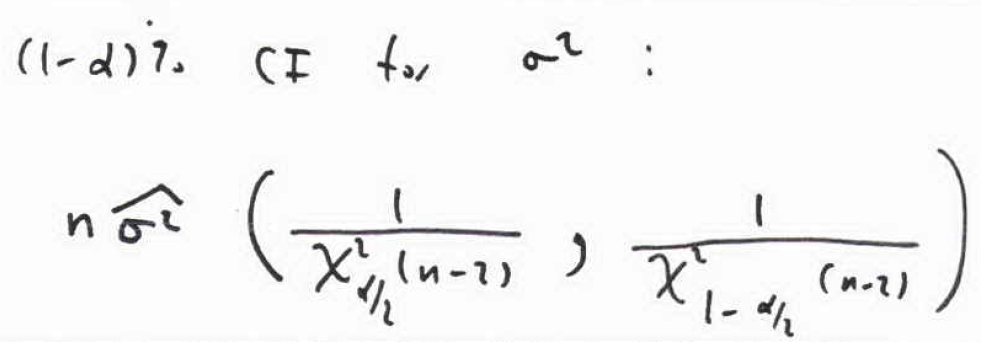 (1-α)% CI for σ² :
n σ̂² ( 1/χ²_{α/2}(n-2) , 1/χ²_{1-α/2}(n-2) )